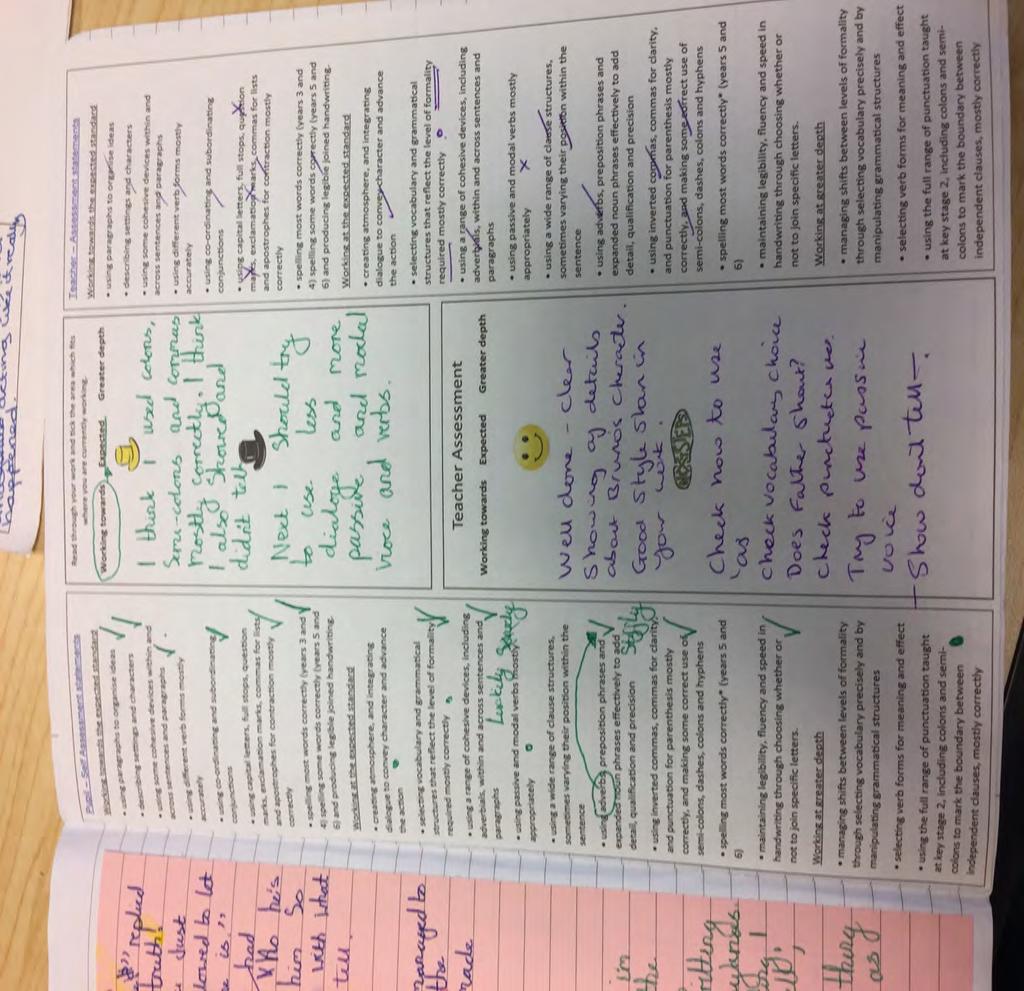 happened.
Pupil - Self Assessment statements
Working towards the expected standard
• using paragraphs to organise ideas
• describing settings and characters
• using some cohesive devices within and
across sentences and paragraphs
• using different verb forms mostly
accurately
• using co-ordinating and subordinating
conjunctions
• using capital letters, full stops, question
marks, exclamation marks, commas for lists
and apostrophes for contraction mostly
correctly
• spelling most words correctly (years 3 and
4) spelling some words correctly (years 5 and
6) and producing legible joined handwriting.
Working at the expected standard
• creating atmosphere, and integrating
dialogue to convey character and advance
the action
• selecting vocabulary and grammatical
structures that reflect the level of formality
required mostly correctly
• using a range of cohesive devices, including
adverbials, within and across sentences and
paragraphs
Luckily Slowly
• using passive and modal verbs mostly
appropriately
• using a wide range of clause structures,
sometimes varying their position within the
sentence
• using adverbs, preposition phrases and
expanded noun phrases effectively to add
detail, qualification and precision
Softly
• using inverted commas, commas for clarity,
and punctuation for parenthesis mostly
correctly, and making some correct use of
semi-colons, dashes, colons and hyphens
• spelling most words correctly* (years 5 and
6)
• maintaining legibility, fluency and speed in
handwriting through choosing whether or
not to join specific letters.
Working at greater depth
• managing shifts between levels of formality
through selecting vocabulary precisely and by
manipulating grammatical structures
• selecting verb forms for meaning and effect
• using the full range of punctuation taught
at key stage 2, including colons and semi-
colons to mark the boundary between
independent clauses, mostly correctly
Read through your work and tick the area which fits
where you are currently working.
Working towards Expected Greater depth
I think I used colons,
Semi-colons and commas
mostly correctly. I think
I also showed and
didn't tell
Next I should try
to use less
dialoge and more
passive and modal
voice and verbs.
Teacher Assessment
Working towards Expected Greater depth
Well done - clear
showing of details
about Bruno's character.
Good style shown in
your work.
Check how to use
'as
check vocabulary choice
Does Father shout?
Check punctuation.
Try to use passive
voice
- Show don't tell -
Teacher - Assessment statements
Working towards the expected standard
• using paragraphs to organise ideas
• describing settings and characters
• using some cohesive devices within and
across sentences and paragraphs
• using different verb forms mostly
accurately
• using co-ordinating and subordinating
conjunctions
• using capital letters, full stops, question
marks, exclamation marks, commas for lists
and apostrophes for contraction mostly
correctly
• spelling most words correctly (years 3 and
4) spelling some words correctly (years 5 and
6) and producing legible joined handwriting.
Working at the expected standard
• creating atmosphere, and integrating
dialogue to convey character and advance
the action
• selecting vocabulary and grammatical
structures that reflect the level of formality
required mostly correctly
• using a range of cohesive devices, including
adverbials, within and across sentences and
paragraphs
• using passive and modal verbs mostly
appropriately
• using a wide range of clause structures,
sometimes varying their position within the
sentence
• using adverbs, preposition phrases and
expanded noun phrases effectively to add
detail, qualification and precision
• using inverted commas, commas for clarity,
and punctuation for parenthesis mostly
correctly, and making some correct use of
semi-colons, dashes, colons and hyphens
• spelling most words correctly* (years 5 and
6)
• maintaining legibility, fluency and speed in
handwriting through choosing whether or
not to join specific letters.
Working at greater depth
• managing shifts between levels of formality
through selecting vocabulary precisely and by
manipulating grammatical structures
• selecting verb forms for meaning and effect
• using the full range of punctuation taught
at key stage 2, including colons and semi-
colons to mark the boundary between
independent clauses, mostly correctly
replied
truth!
Just
loved to let
is."
had
who he's
him so
with what
tell.
managed to
the
made
I'm
the
as